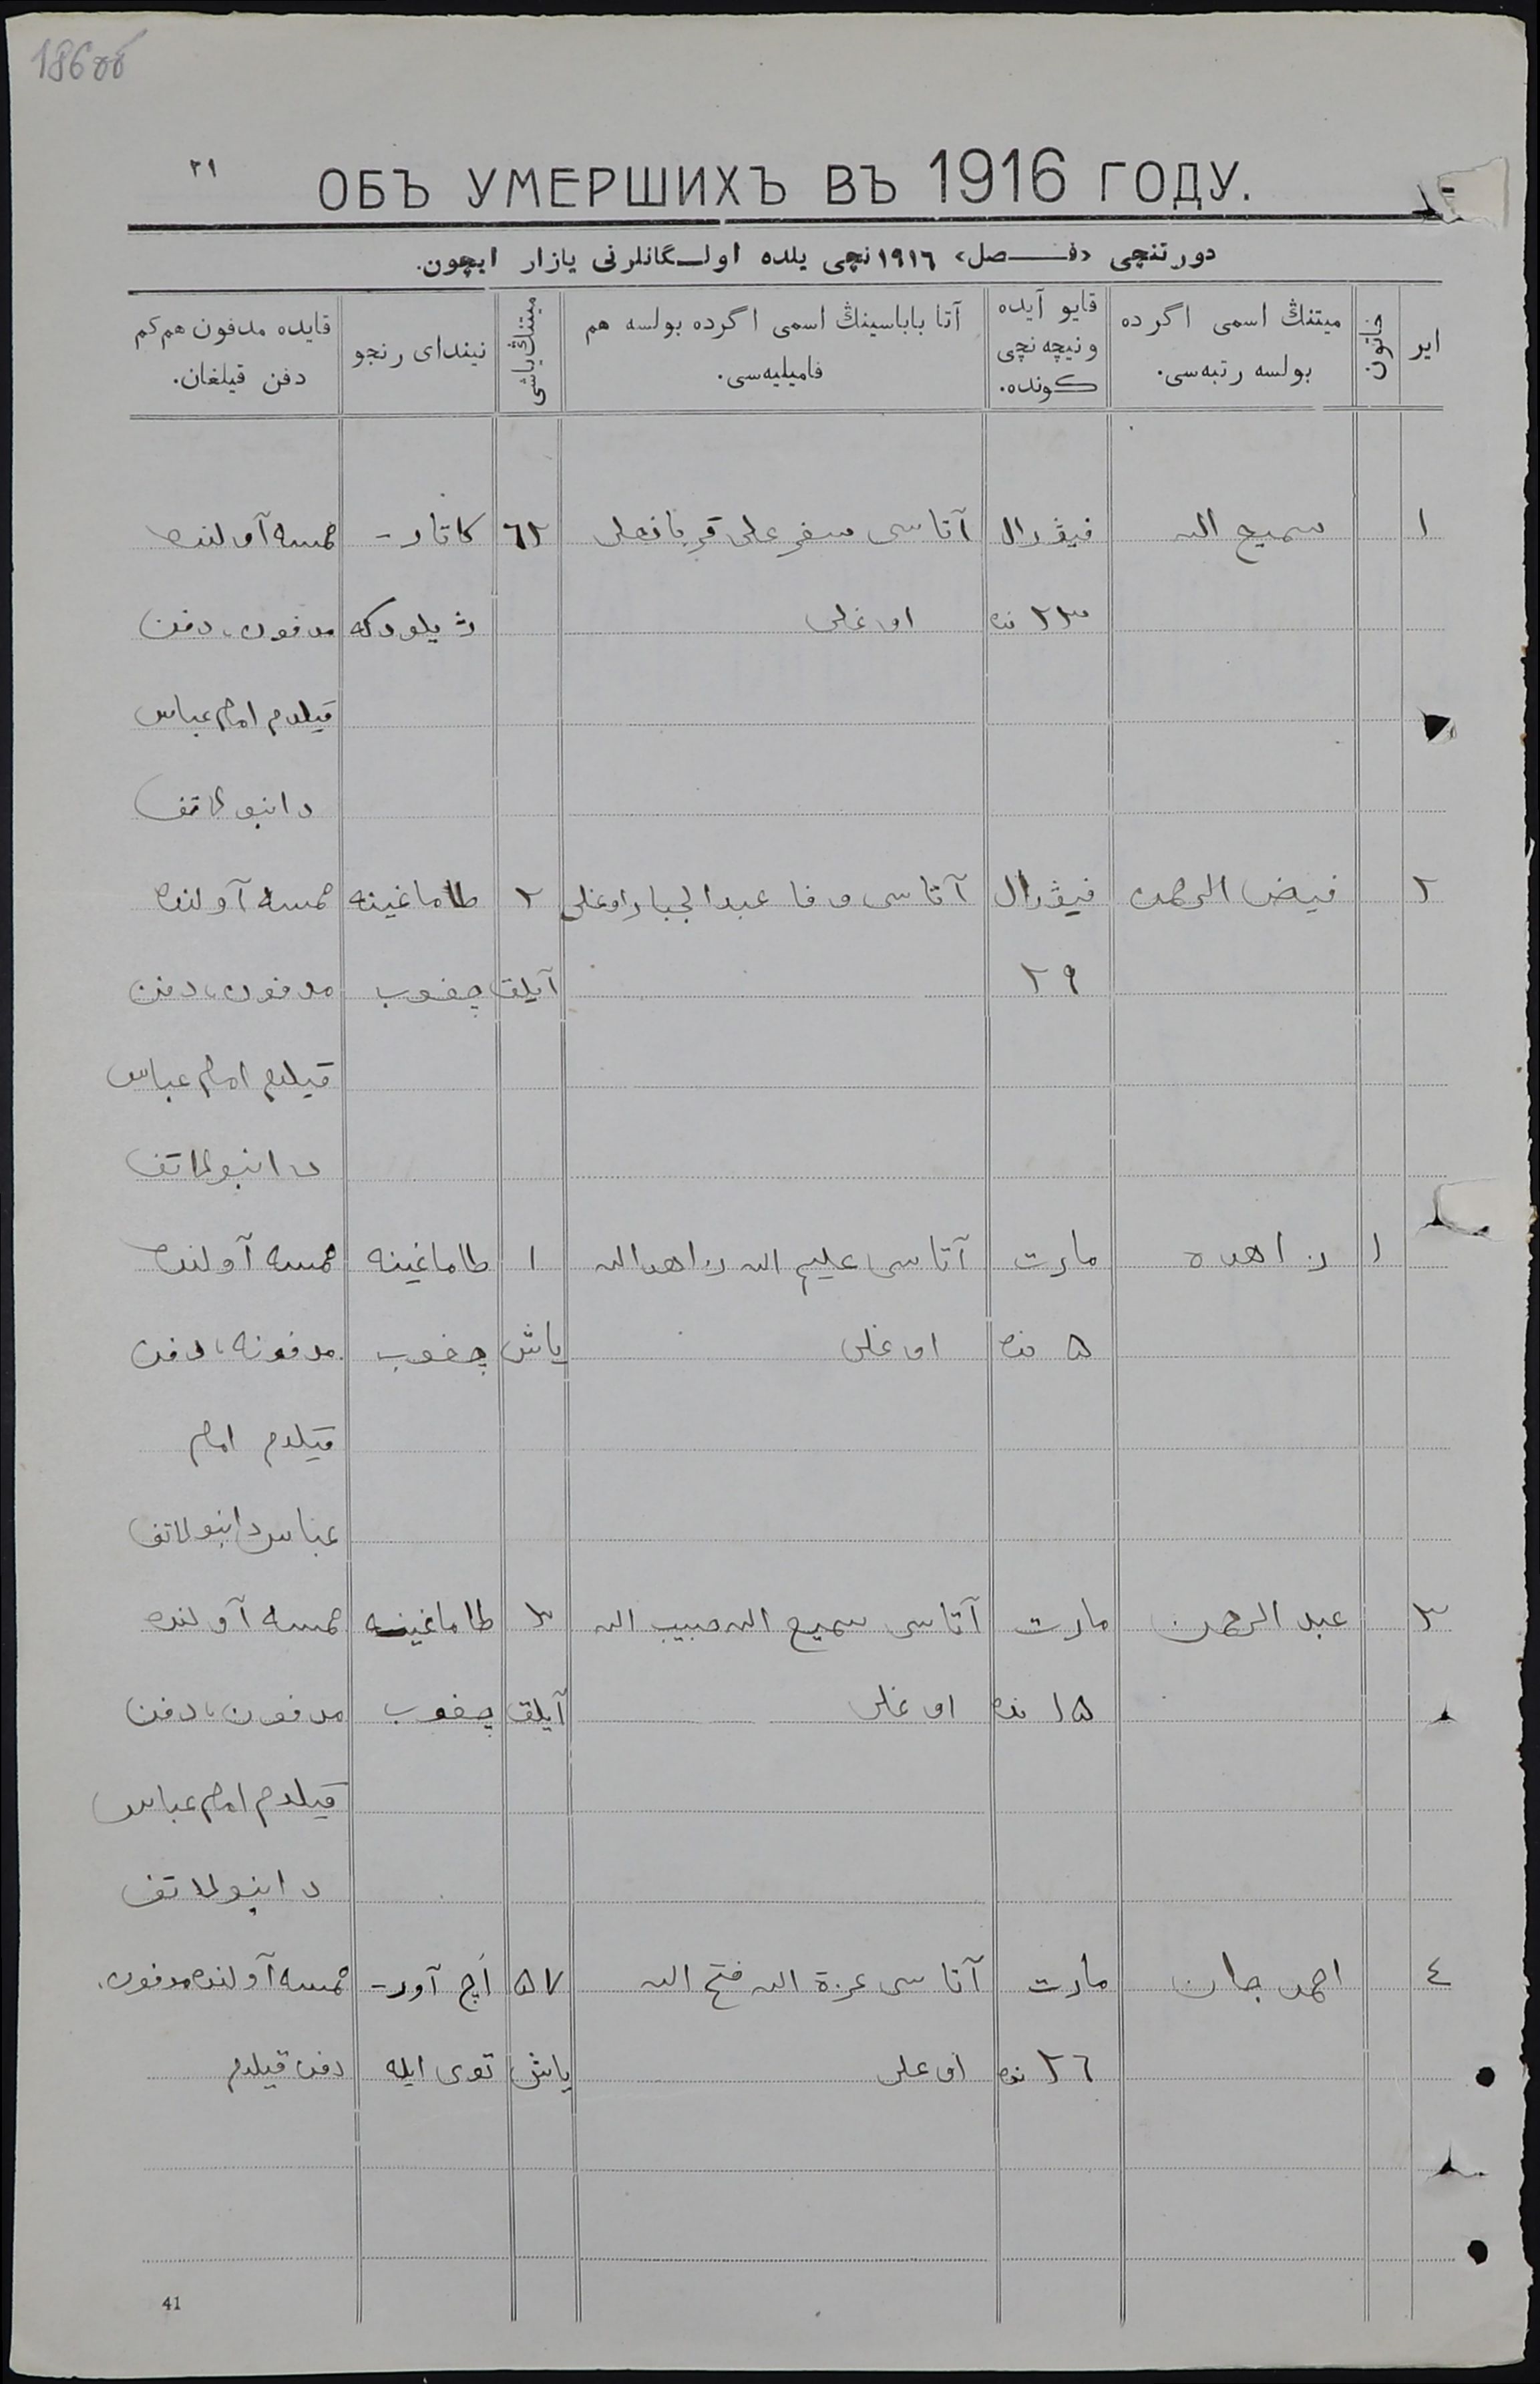 186 об
٢١
ОБЪ УМЕРШИХЪ ВЪ 1916 ГОДУ.
دورتنچی «فـصل» ١٩١٦نچی یلده اولـگانلرنی یازار ایچون.
ایر
خاتون
میتنڭ اسمی اگرده
بولسه رتبه‌سی.
قایو آیده
ونیچه‌نچی
کونده.
آتا باباسینڭ اسمی اگرده بولسه هم
فامیلیه‌سی.
میتنڭ یاشی
نیندای رنجو
قایده مدفون هم‌کم
دفن قیلغان.
١ سمیع الله فیۋرال آتاسی سفر علی قربانعلی ٦٢ کاتار- آولنده
٢٣ نده اوغلی مدفون، دفن
قیلدم امام عباس
٢ فیض الرحمن فیۋرال آتاسی وفا عبدالجبار اوغلی ٢ طاماغینه آولنده
٢٩ آیلق چغوب مدفون، دفن
قیلدم امام عباس
١ زاهده مارت آتاسی علیم الله زاهدالله ١ طاماغینه آولنده
٥ نده اوغلی یاش چغوب مدفونه، دفن
قیلدم امام
عباس
٣ عبد الرحمن مارت آتاسی سمیع الله حبیب الله ٣ طاماغینه آولنده
١٥ نده اوغلی آیلق چغوب مدفون، دفن
قیلدم امام عباس
٤ احمد جان مارت آتاسی عزة الله فتح الله ٥٧ اچ آور- آولنده مدفون،
٢٦ نده اوغلی یاش توی ایله دفن قیلدم
41